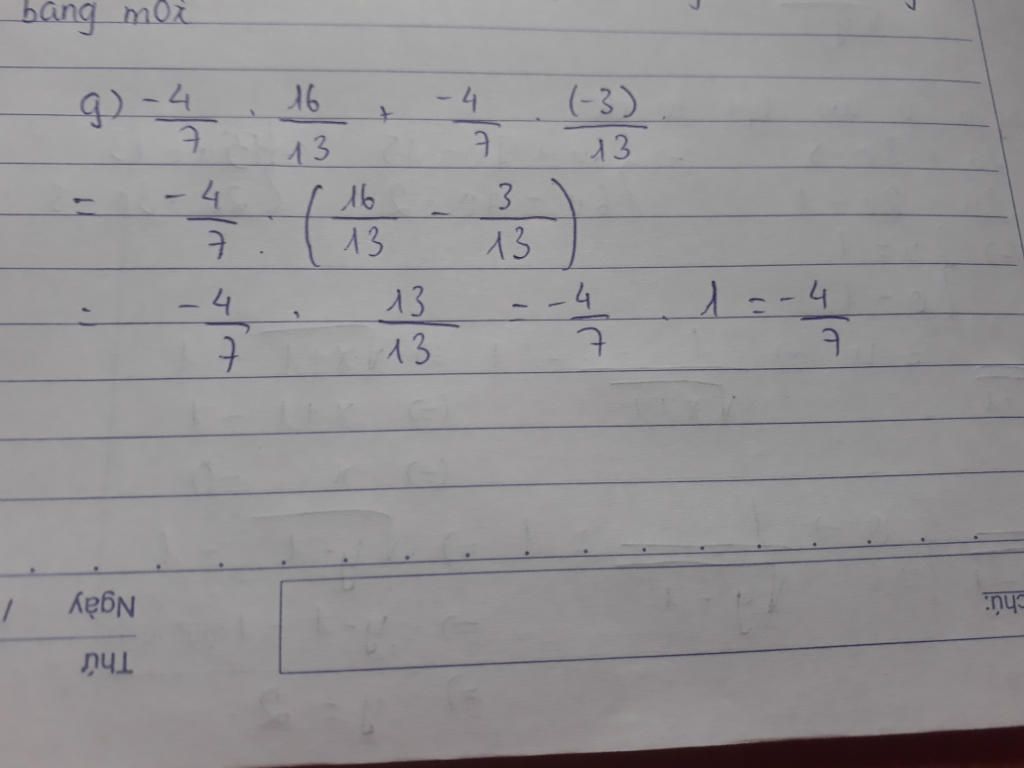 bang mOi
g) -4/7 . 16/13 + -4/7 . (-3)/13
= -4/7 . (16/13 - 3/13)
= -4/7 . 13/13 = -4/7 . 1 = -4/7
chú:
Ngày /
Thứ